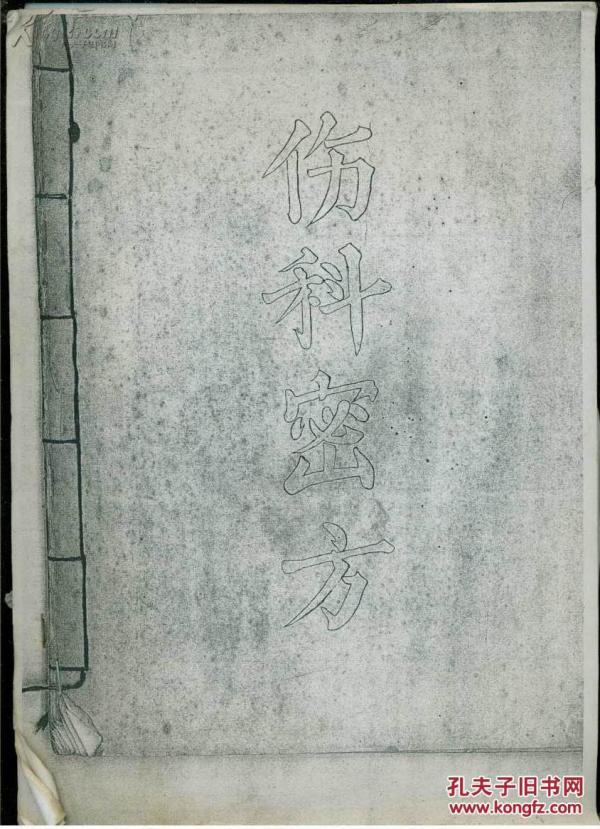 伤科密方
孔夫子旧书网
www.kongfz.com